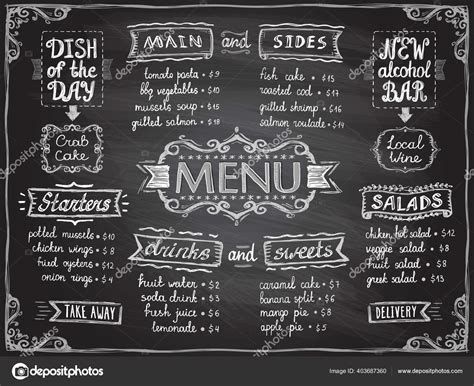 DISH
of the
DAY
Crab
Cake
MAIN and SIDES
tomato pasta • $9
bbq vegetables • $10
mussels soup • $15
grilled salmon • $18
fish cake • $15
roasted cod • $18
grilled shrimp • $16
salmon roulade • $14
NEW
alcohol
BAR
Local
Wine
MENU
Starters
potted mussels • $10
chicken wings • $8
fried oysters • $12
onion rings • $4
TAKE AWAY
drinks and sweets
fruit water • $2
soda drink • $3
fresh juice • $6
lemonade • $4
caramel cake • $7
banana split • $6
mango pie • $5
apple pie • $5
SALADS
chicken hot salad • $12
veggie salad • $8
fruit salad • $8
greek salad • $13
DELIVERY
depositphotos
Image ID: 403687360
www.depositphotos.com